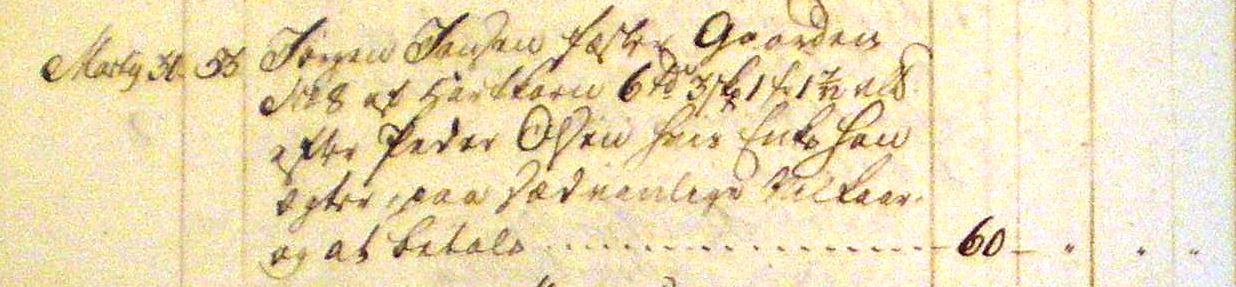 Marty 31. 53 Jørgen Jensen fæster Gaarden
No 8 af Hartkorn 6 td 3 skp 1 fr 1 1/2 alb.
efter Peder Olsen hvis Enke han
ægter, paa sædvanlige Vilkaar.
og at betale 60 - " " "